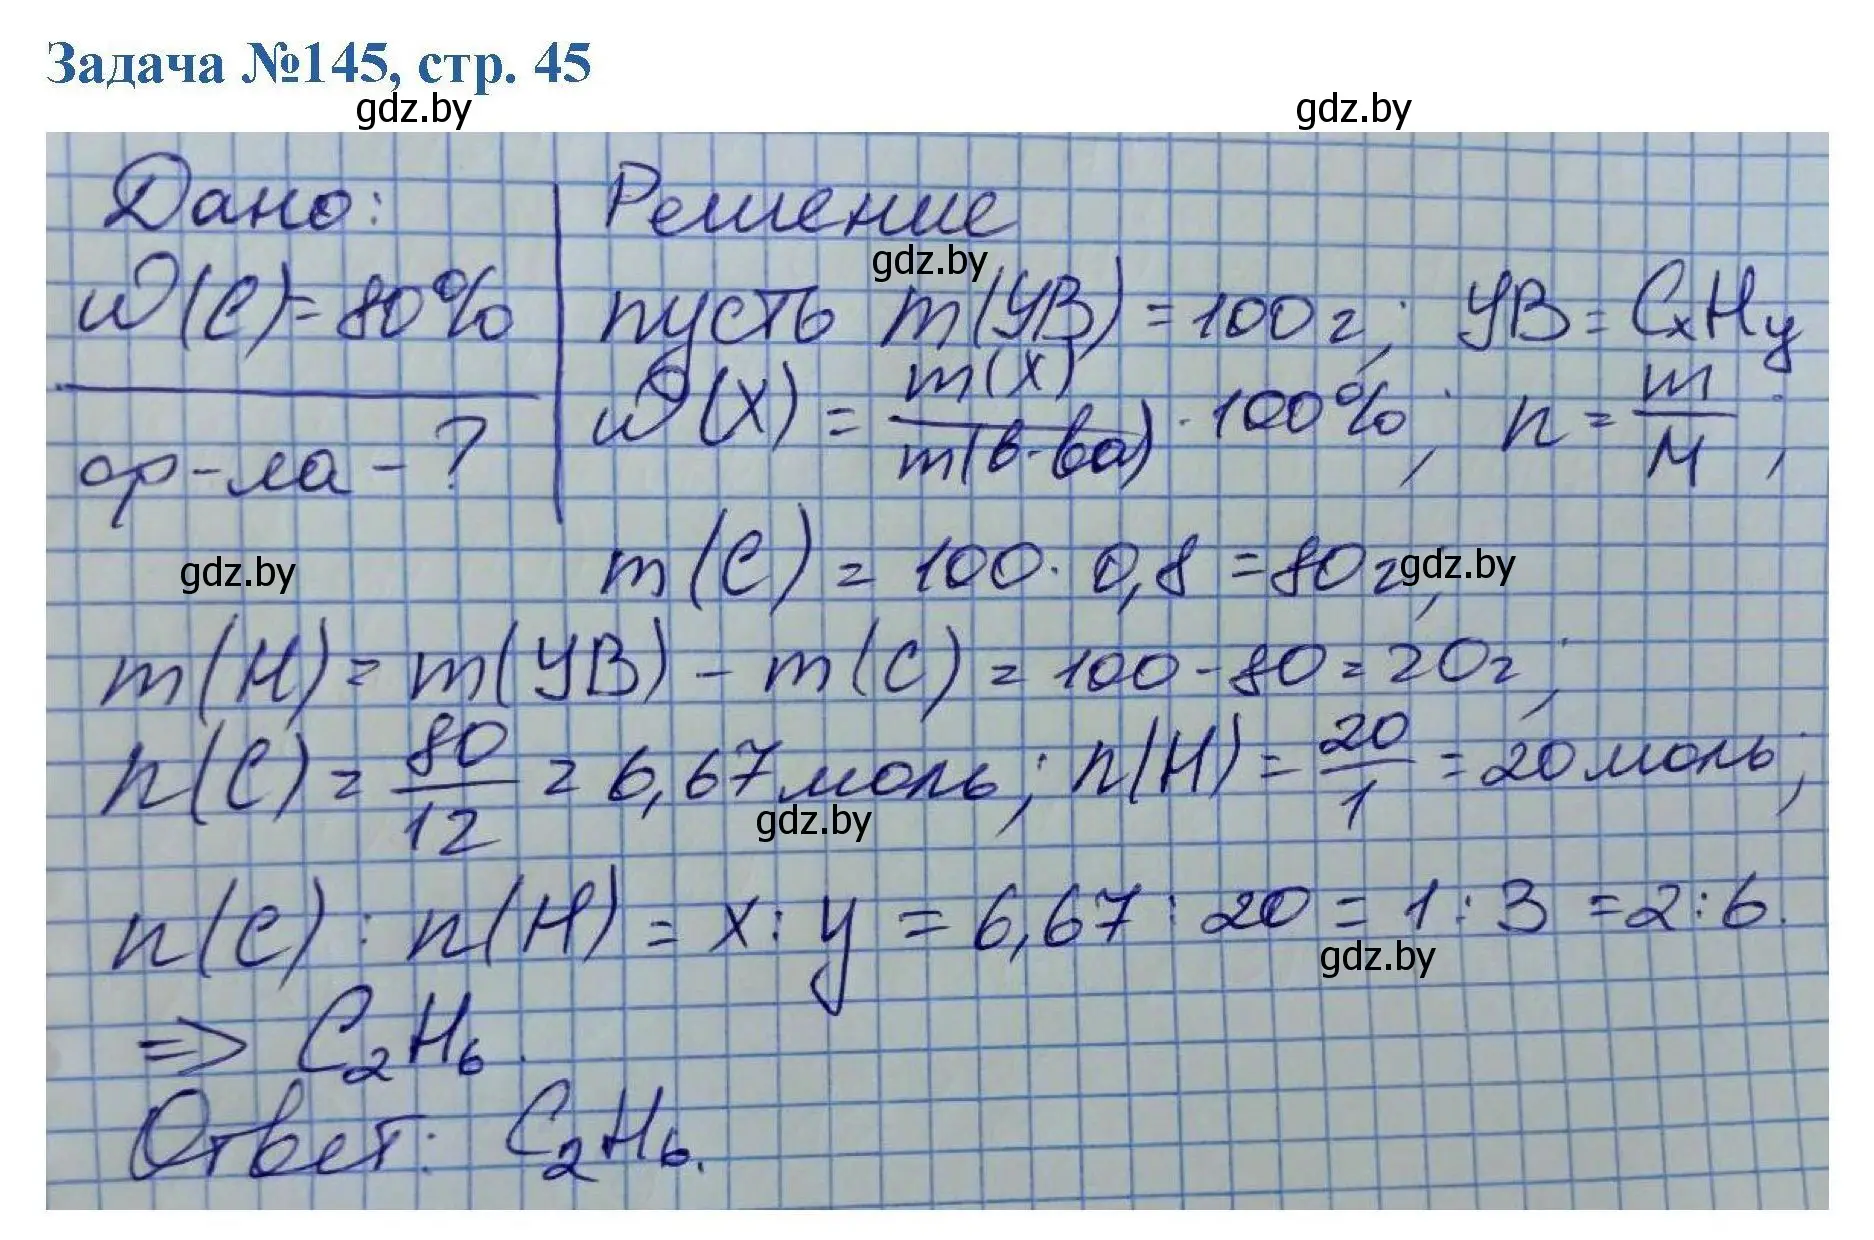 Задача №145, стр. 45
gdz.by gdz.by
Дано: Решение
gdz.by
w(C)=80% пусть m(УВ)=100г; УВ=CxHy
w(X) = m(X)/m(в-ва) · 100%; n = m/M;
ф-ла-?
m(C) = 100 · 0,8 = 80г;
gdz.by gdz.by
m(H) = m(УВ) - m(C) = 100 - 80 = 20г;
n(C) = 80/12 = 6,67 моль; n(H) = 20/1 = 20 моль;
gdz.by
n(C) : n(H) = x : y = 6,67 : 20 = 1 : 3 = 2 : 6.
gdz.by
=> C₂H₆.
Ответ: C₂H₆.